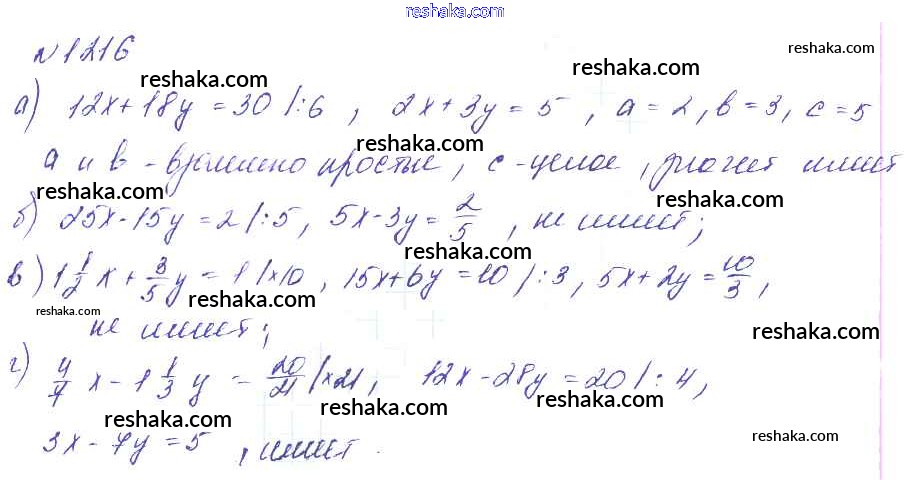 reshaka.com
№1216
reshaka.com
reshaka.com reshaka.com
а) 12x + 18y = 30 |:6 , 2x + 3y = 5 , a = 2, b = 3, c = 5
reshaka.com
а и b - взаимно простые, c - целое, значит имеет
reshaka.com reshaka.com
б) 25x - 15y = 2 |:5, 5x - 3y = 2/5 , не имеет;
reshaka.com reshaka.com
в) 1 1/2 x + 3/5 y = 1 |×10 , 15x + 6y = 10 |:3, 5x + 2y = 10/3 ,
reshaka.com reshaka.com
не имеет; reshaka.com
reshaka.com
г) 4/7 x - 1 1/3 y = 20/21 |×21, 12x - 28y = 20 |:4,
reshaka.com reshaka.com
3x - 7y = 5 , имеет.
reshaka.com reshaka.com
reshaka.com